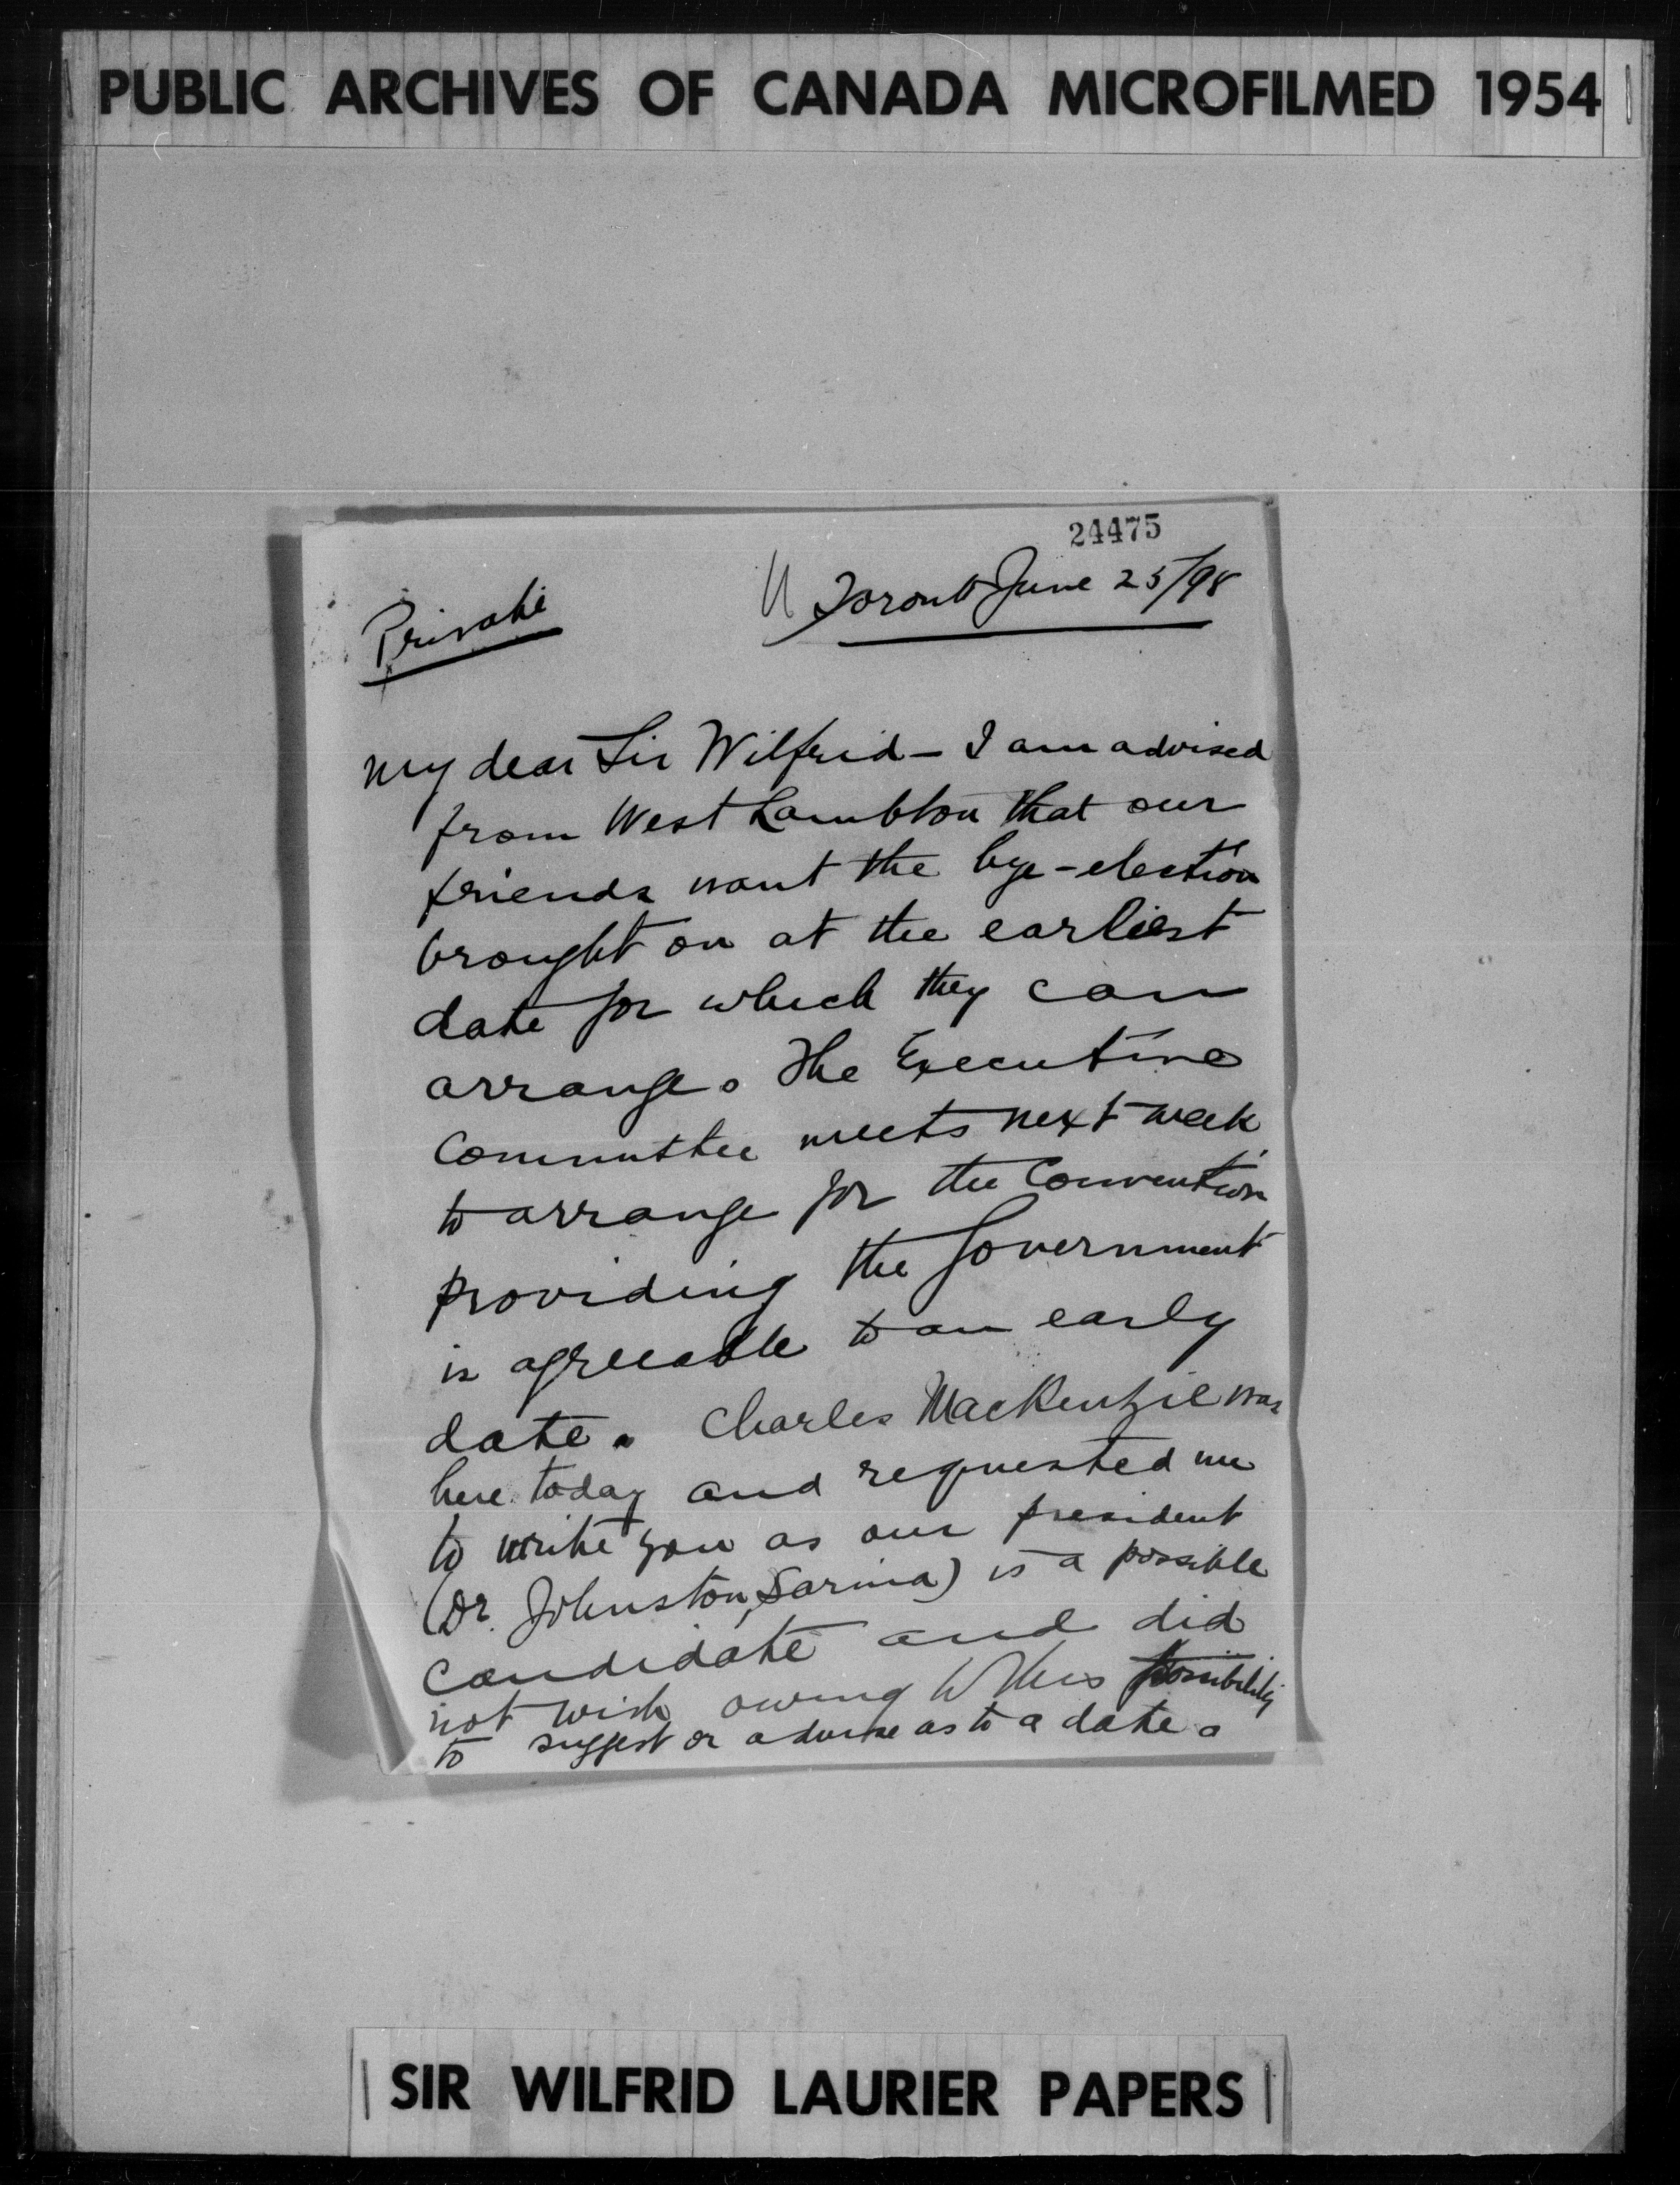 PUBLIC ARCHIVES OF CANADA MICROFILMED 1954
24475
Private
Toronto June 25/98
My dear Sir Wilfrid — I am advised
from West Lambton that our
friends want the bye-election
brought on at the earliest
date for which they can
arrange. The Executive
Committee meets next week
to arrange for the Convention
providing the Government
is agreeable to an early
date. Charles MacKenzie was
here today and requested me
to write you as our president
(Dr. Johnston, Sarnia) is a possible
candidate and did
not wish owing to this possibility
to suggest or advise as to a date.
SIR WILFRID LAURIER PAPERS